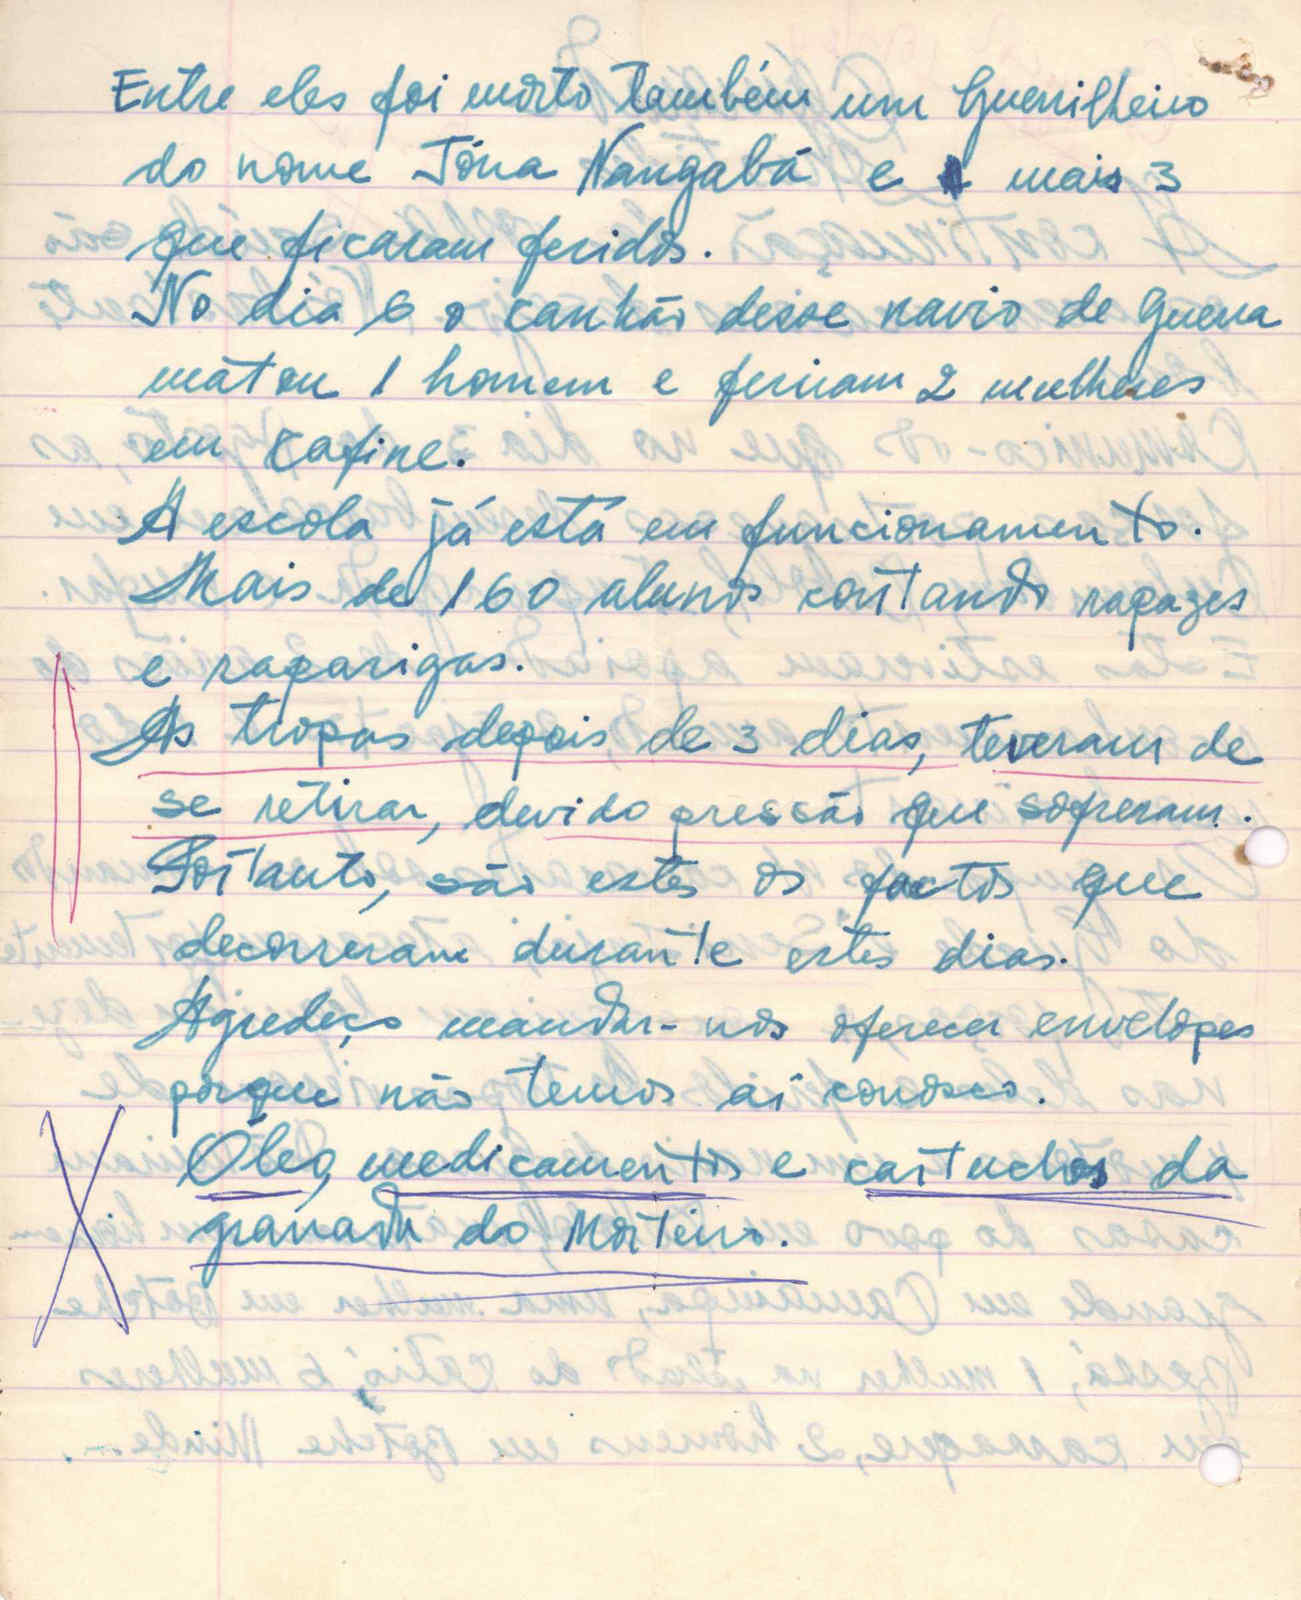 Entre eles foi morto também um Guerrilheiro
do nome Tóna Nangabá e mais 3
que ficaram feridos.
No dia 6 o canhão desse navio de guerra
matou 1 homem e feriram 2 mulheres
em Cafine.
A escola já está em funcionamento.
Mais de 160 alunos contando rapazes
e raparigas.
As tropas depois de 3 dias, teveram de
se retirar, devido pressão que soferam.
Portanto, são estes os factos que
decorreram durante estes dias.
Agredeço mandar-nos oferecer envelopes
porque não temos aí conosco.
Óleo, medicamentos e cartuchos da
granada do Morteiro.